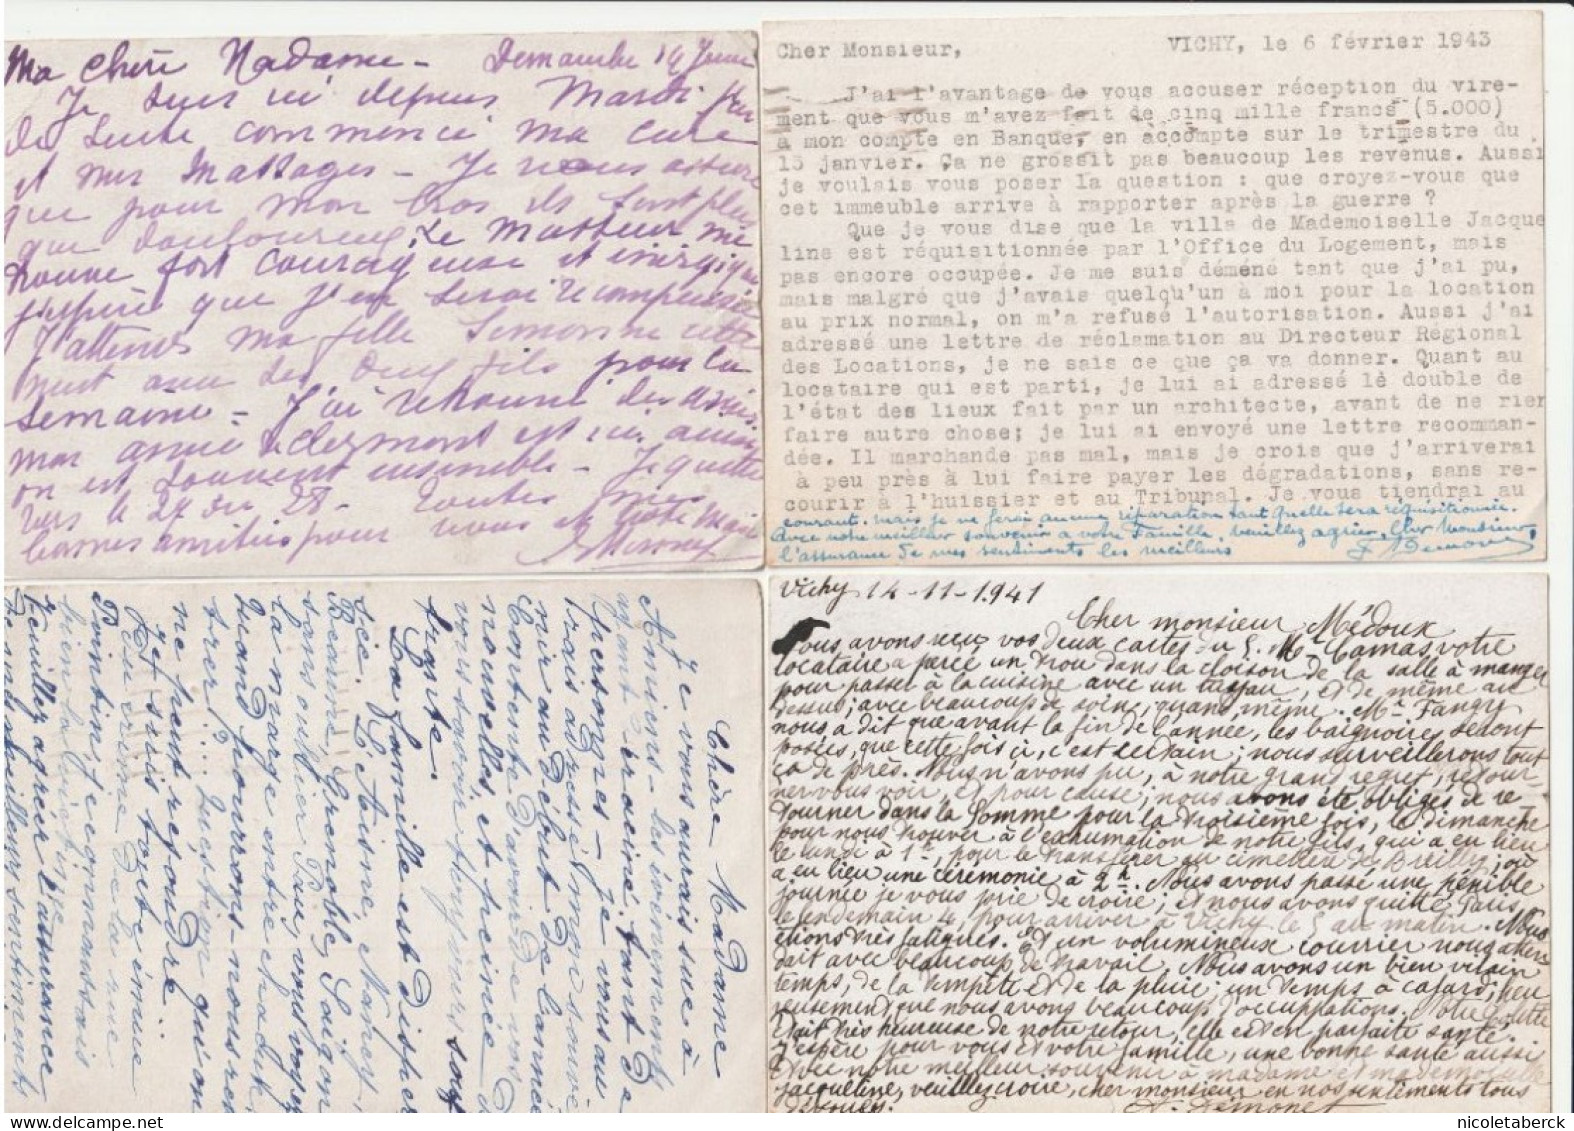 Ma chère Madame - Demanche 14 Juin
Je suis ici depuis Mardi j'ai
de suite commencé ma cure
et mes massages - Je vous assure
que pour mon bras ils sont plus
que douloureux, Le Masseur me
trouve fort courageuse et énergique
j'espère que j'en serai récompensée
J'attends ma fille Simonne cette
nuit avec ses deux fils pour la
semaine - J'ai retrouvé des amis
mon amie de Clermont est ici aussi
on est souvent ensemble - Je quitte
vers le 27 ou 28 - Toutes mes
bonnes amitiés pour vous et
Cher Monsieur, VICHY, le 6 février 1943
J'ai l'avantage de vous accuser réception du vire-
ment que vous m'avez fait de cinq mille francs (5.000)
à mon compte en Banque, en accompte sur le trimestre du
15 janvier. Ça ne grossit pas beaucoup les revenus. Aussi
je voulais vous poser la question : que croyez-vous que
cet immeuble arrive à rapporter après la guerre ?
Que je vous dise que la villa de Mademoiselle Jacque
line est réquisitionnée par l'Office du Logement, mais
pas encore occupée. Je me suis déméné tant que j'ai pu,
mais malgré que j'avais quelqu'un à moi pour la location
au prix normal, on m'a refusé l'autorisation. Aussi j'ai
adressé une lettre de réclamation au Directeur Régional
des Locations, je ne sais ce que ça va donner. Quant au
locataire qui est parti, je lui ai adressé lè double de
l'état des lieux fait par un architecte, avant de ne rien
faire autre chose; je lui ai envoyé une lettre recomman-
dée. Il marchande pas mal, mais je crois que j'arriverai
à peu près à lui faire payer les dégradations, sans re-
courir à l'huissier et au Tribunal. Je vous tiendrai au
courant. mais je ne ferai aucune réparation tant qu'elle sera réquisitionnée.
Avec notre meilleur souvenir à votre Famille, veuillez agréer, Cher Monsieur,
l'assurance de mes sentiments les meilleurs
Demonet
Chère Madame
Je vous aurais sue à
Amiens - les événements
ayant - enraciné tant de
personnes - je vous au
rais adressé mon souve
nir au début de l'année
Contente d'avoir de vos
nouvelles et peinée de
vous savoir toujours souf
frante.
La famille est disper
sée. L'Aisne, Nancy,
Beaune, Grenoble, Saïgon
sans oublier Pau, vous voyez
la marge entre chacun
Quand pourrons-nous ren
trer ? ... question qu'on
ne peut résoudre
Jet suis tout émue
Veuillez agréer l'assurance
de mes meilleurs sentiments
Vichy 14-11-1941
Cher monsieur Médoux
Nous avons reçu vos deux cartes du 5. Mr Camas votre
locataire a percé un trou dans la cloison de la salle à manger
pour passer à la cuisine avec un tuyau, et de même au
dessus, avec beaucoup de soins, quand même. Mr Fangry
nous a dit que avant la fin de l'année, les baignoires seront
posées, que cette fois ci, c'est certain; nous surveillerons tout
ça de près. Nous n'avons pu, à notre grand regret, retour-
ner vous voir, et pour cause; nous avons été obligés de re-
tourner dans la Somme pour la troisième fois, le dimanche
pour nous trouver à l'exhumation de notre fils, qui a eu lieu
le lundi à 1h, pour le transférer au cimetière de Breilly; où
a eu lieu une cérémonie à 2h. Nous avons passé une pénible
journée je vous prie de croire; et nous avons quitté Paris
le lendemain 4, pour arriver à Vichy le 5 au matin. Nous
étions très fatigués. Et un volumineux courrier nous atten
dait avec beaucoup de travail. Nous avons un bien vilain
temps, de la tempête et de la pluie; un temps à cafard; heu
reusement, que nous avons beaucoup d'occupations. Notre
était très heureuse de notre retour, elle est en parfaite santé.
J'espère pour vous et votre famille, une bonne santé aussi
Avec notre meilleur souvenir à madame et mademoiselle
jacqueline, veuillez croire, cher monsieur en nos sentiments tous
dévoués.
Demonet
nicoletaberck